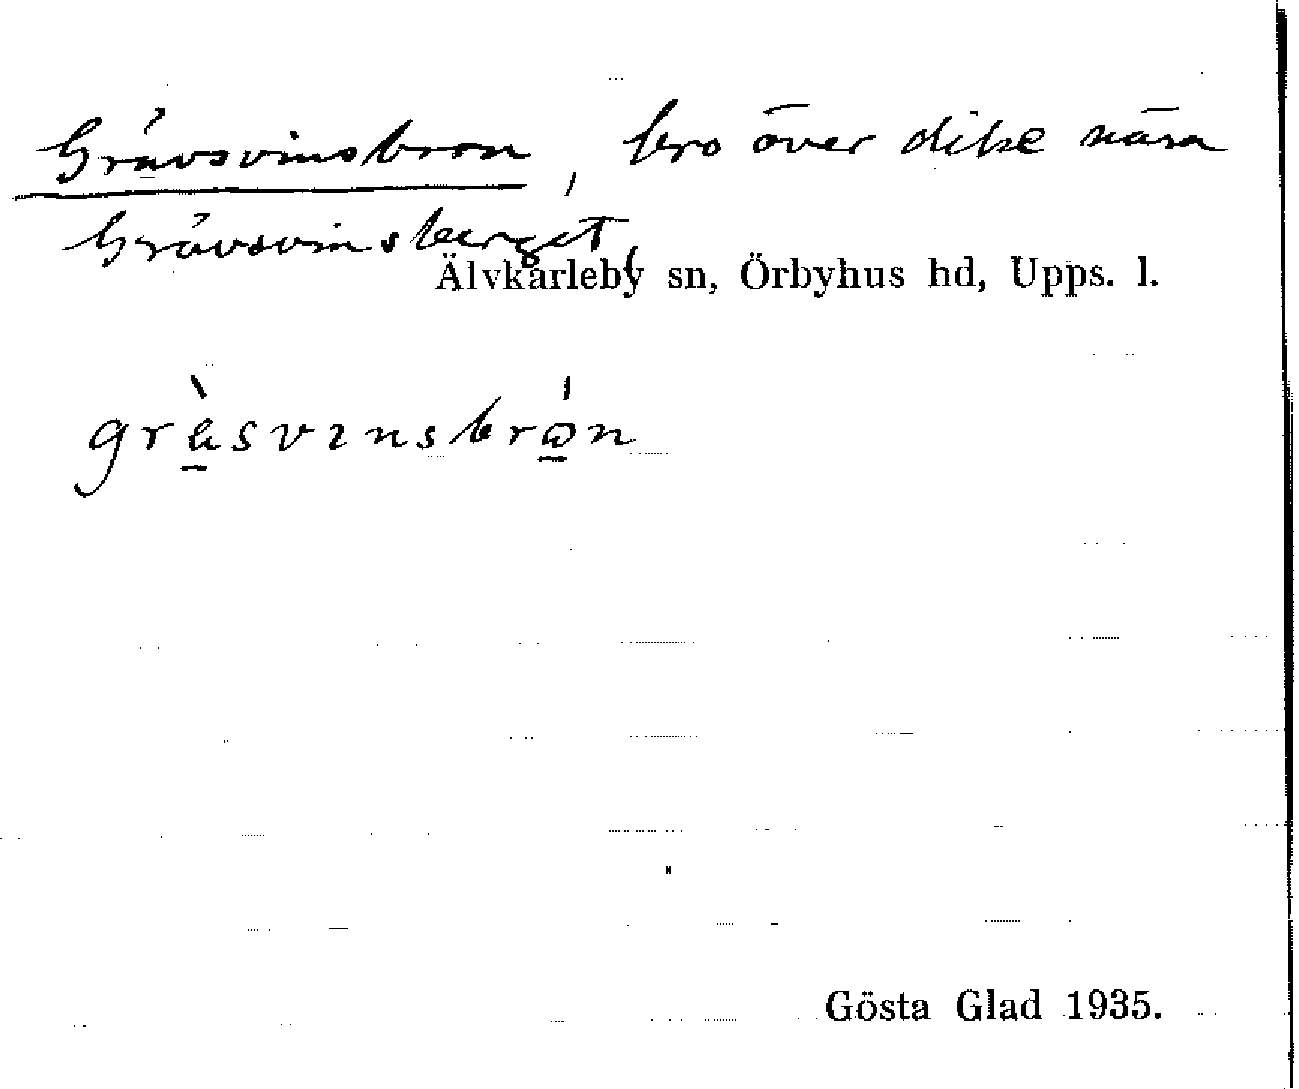 Grävsvinsbron, bro över dike nära
Grävsvinsberget,
Älvkarleby sn, Örbyhus hd, Upps. l.
Gösta Glad 1935.